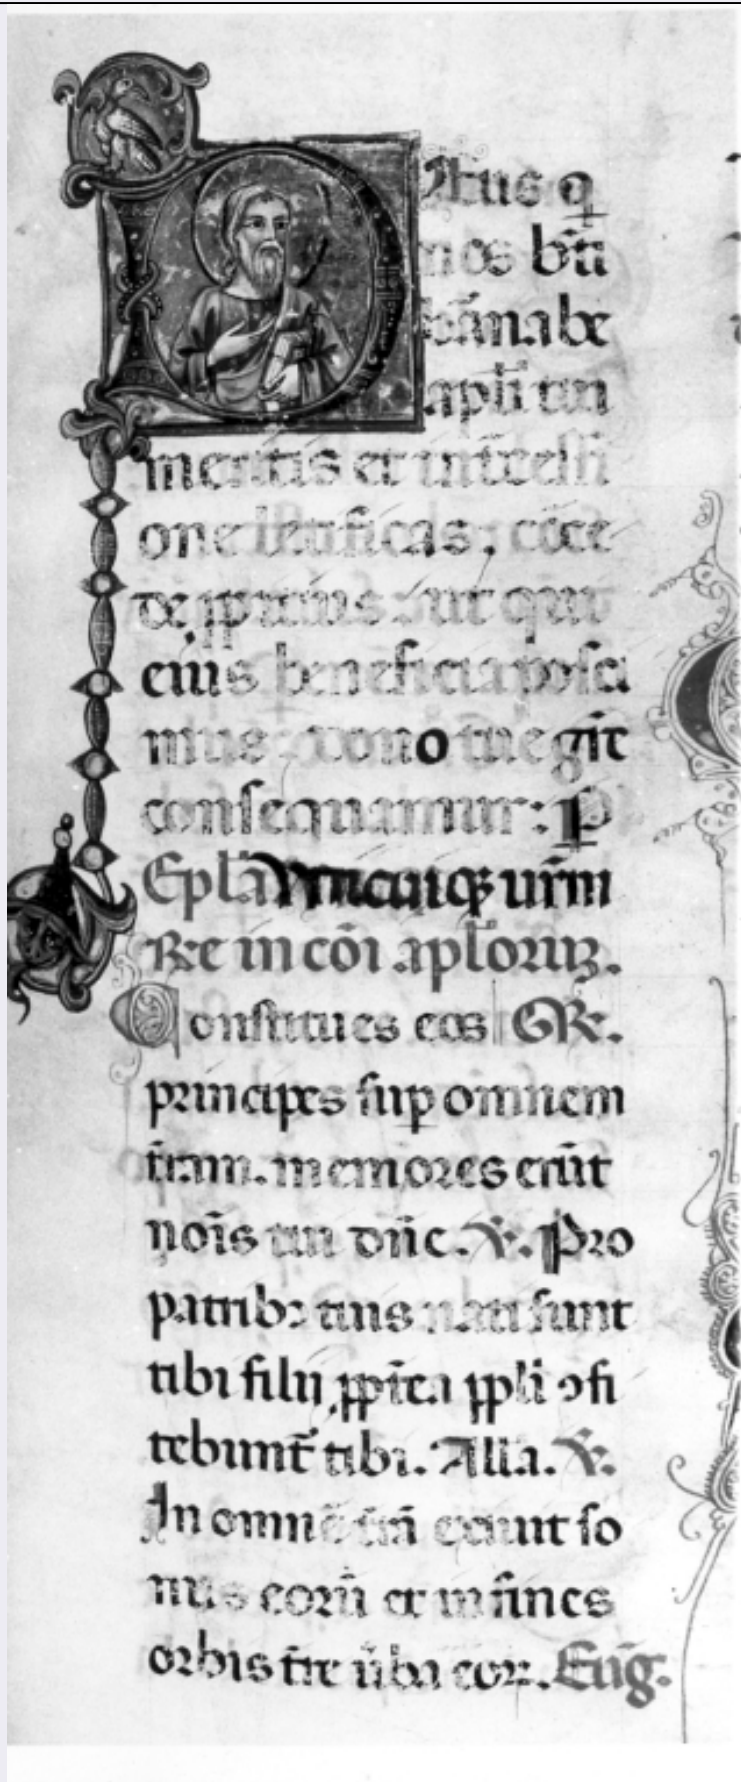 Deus q
nos bti
barnabe
apli tui
meritis et intercessi
one letificas: cōce
de ppitius: ut qui
eius beneficia posci
mus: dono tue grē
consequamur: P
Eplā Vnicuiqʒ urm
Re in cōi aplōruʒ.
Constitues eos GR.
principes sup omnem
trām. memores erūt
nōis tui dnē. V. Pro
patribꝫ tuis nati sunt
tibi filii ppīea ppli ↄfi
tebuntr tibi. Alla. V.
In omnē trā exiuit so
nus eorū et in fines
orbis trē ūba eorꝫ. Eug.